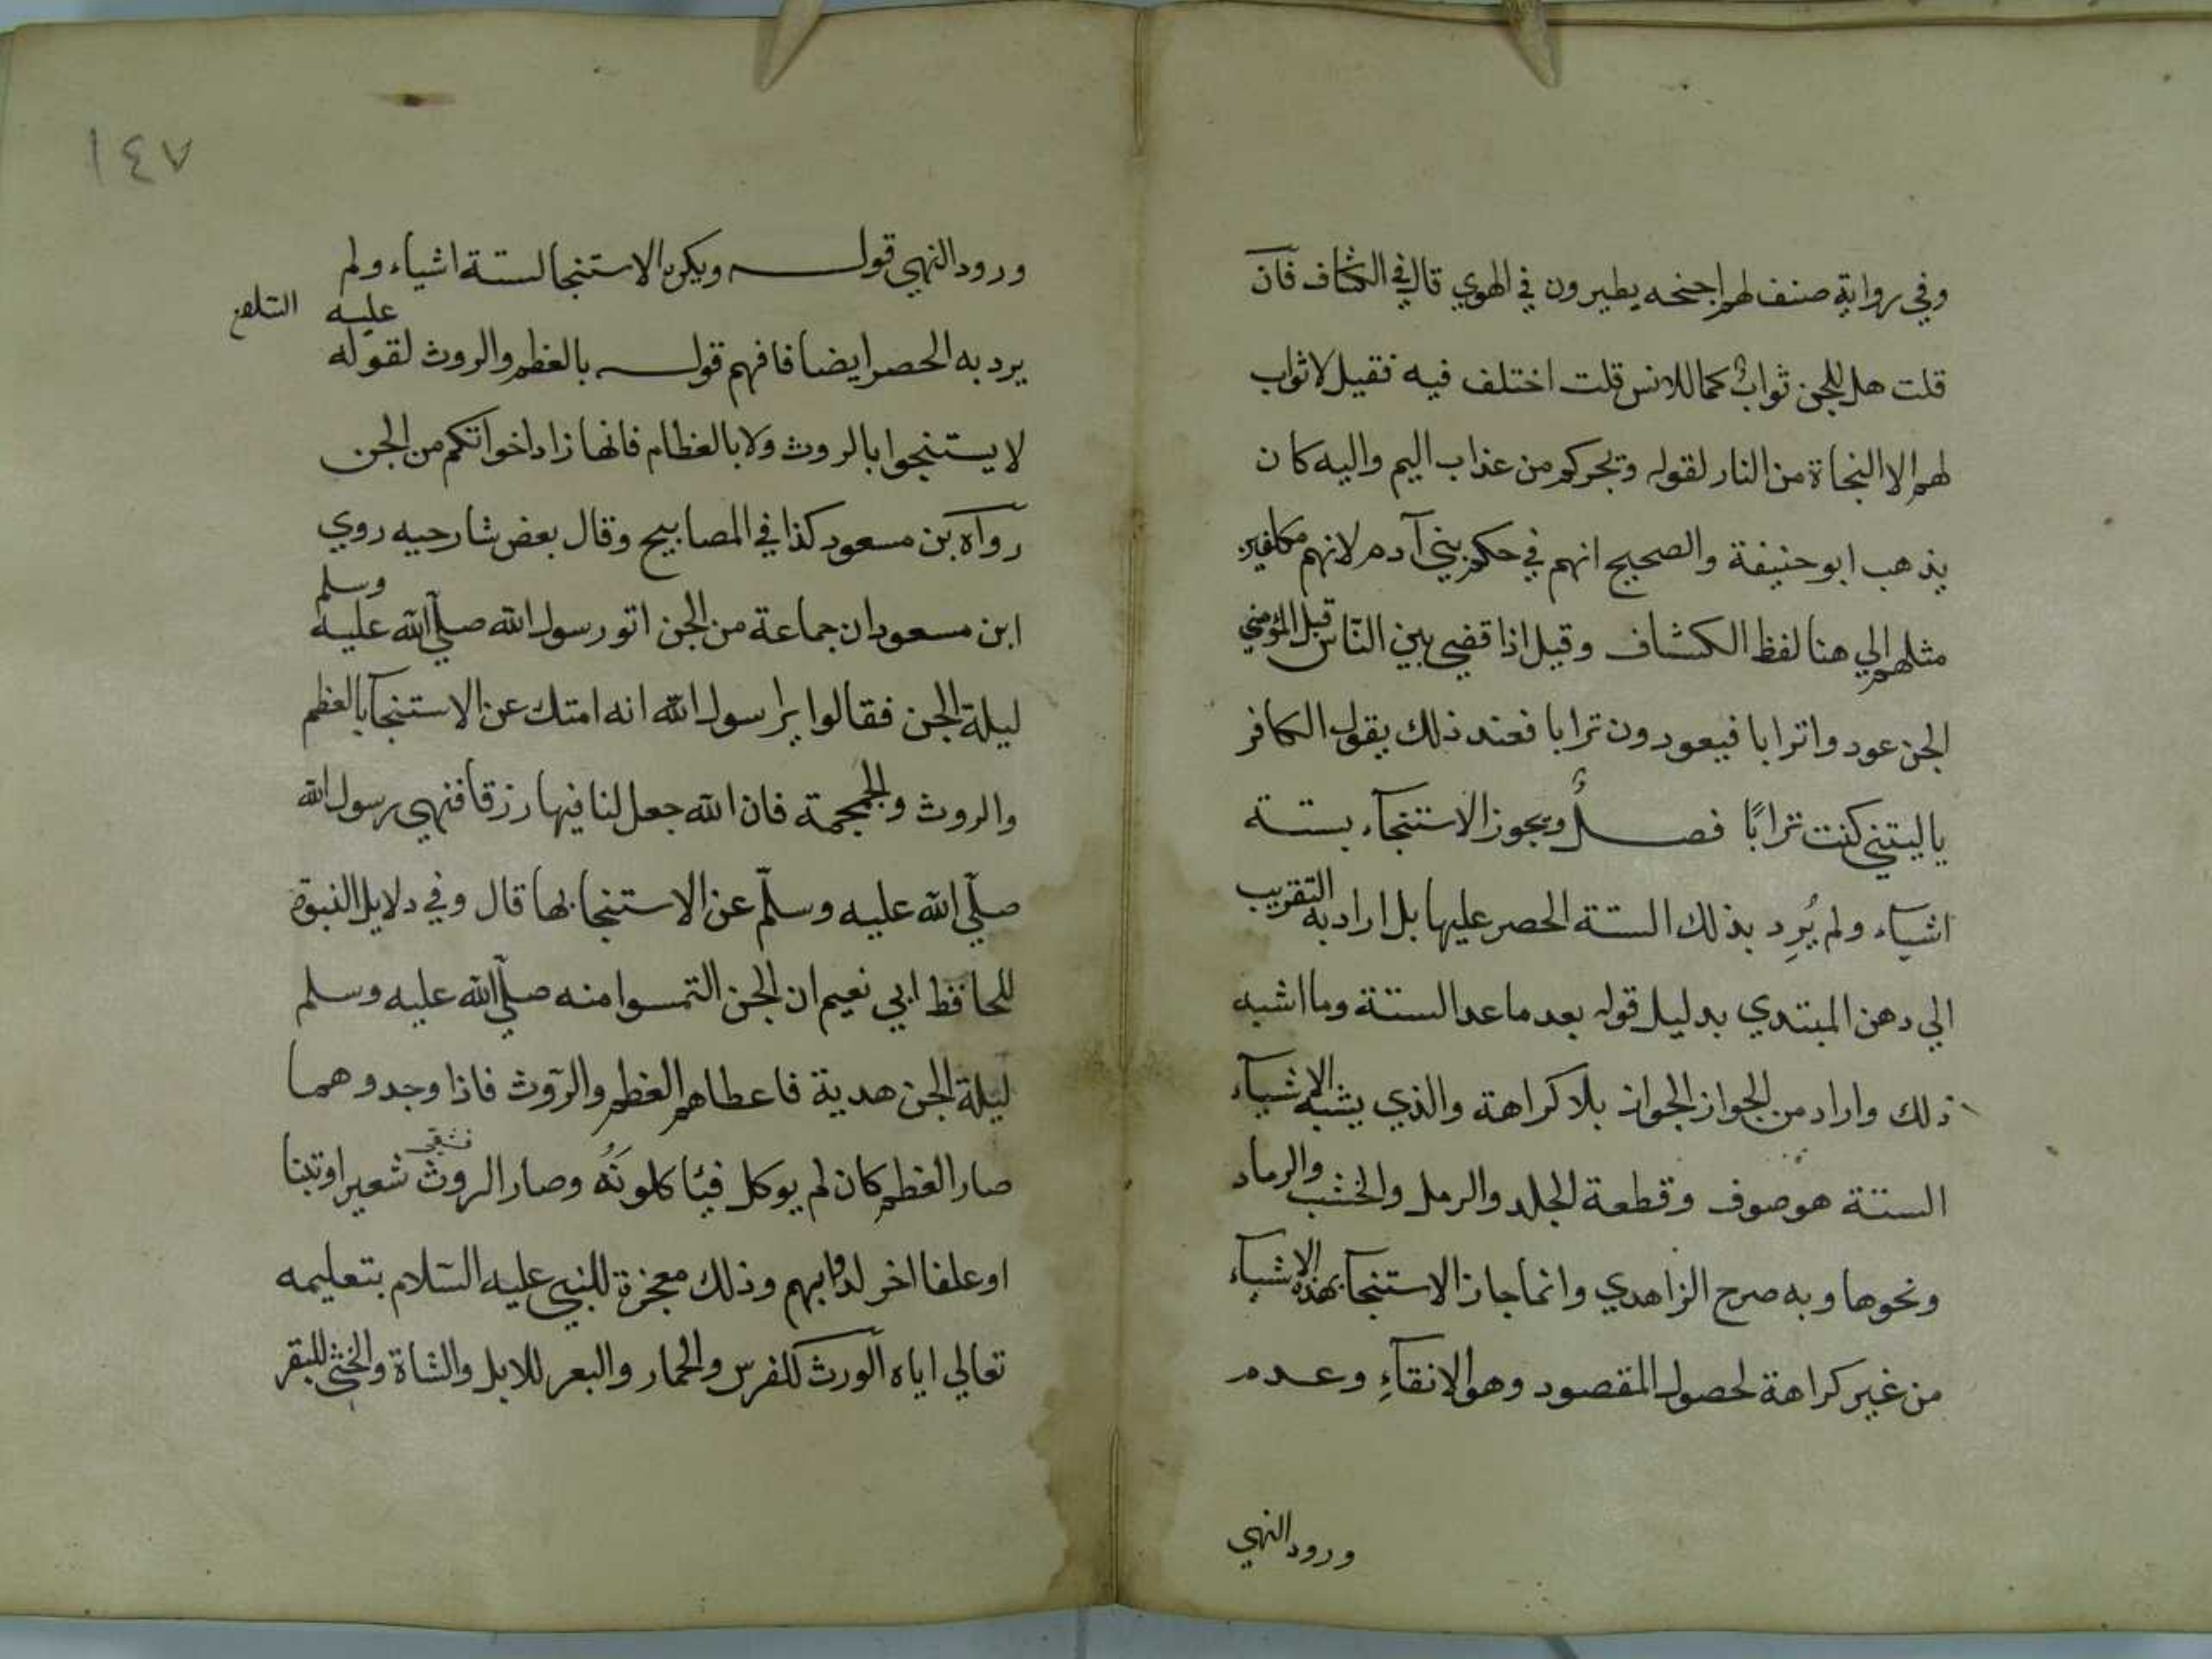 وفي رواية صنف لهم اجنحه يطيرون في الهوي قال في الكشاف فان
قلت هل للجن ثواب كما للانس قلت اختلف فيه فقيل لا ثواب
لهم الا النجاة من النار لقوله ويجركم من عذاب اليم واليه كان
يذهب ابو حنيفة والصحيح انهم في حكم بني آدم لانهم مكلفين
مثلهم الي هنا لفظ الكشاف وقيل اذا قضي بين الناس قيل لمؤمني
الجن عودوا ترابا فيعودون ترابا فعند ذلك يقول الكافر
يا ليتني كنت ترابًا فصل ويجوز الاستنجآء بستة
اشياء ولم يُرِد بذلك الستة الحصر عليها بل اراد به التقريب
الي دهن المبتدي بدليل قوله بعد ما عد الستة وما اشبه
ذلك واراد من الجواز الجواز بلا كراهة والذي يشبه الاشيآء
الستة هو صوف وقطعة الجلد والرمل والخشب والرماد
ونحوها وبه صرح الزاهدي وانما جاز الاستنجآ بهذه الاشيآء
من غير كراهة لحصول المقصود وهو الانقآءِ وعدم
ورود النهي
١٤٧
ورود النهي قوله ويكره الاستنجا لستة اشياء ولم
يرد به الحصر ايضا فافهم قوله بالعظم والروث لقوله عليه السلام
لا يستنجوا بالروث ولا بالعظام فانها زاد اخوانكم من الجن
رواه بن مسعود كذا في المصابيح وقال بعض شارحيه روي
ابن مسعود ان جماعة من الجن اتو رسول الله صلّي الله عليه وسلم
ليلة الجن فقالوا يا رسول الله انه امتك عن الاستنجآ بالعظم
والروث والجمجمة فان الله جعل لنا فيها رزقا فنهي رسول الله
صلّي الله عليه وسلّم عن الاستنجا بها قال وفي دلايل النبوة
للحافظ ابي نعيم ان الجن التمسوا منه صلّي الله عليه وسلم
ليلة الجن هدية فاعطاهم العظم والرّوث فاذا وجدوهما
صار العظم كان لم يوكل فيأكلونَهُ وصار الروث شعير او تبنا
او علفا اخر لدوابهم وذلك معجزة للنبي عليه السّلام بتعليمه
تعالي اياه الورث للفرس والحمار والبعر للابل والشاة والخثي للبقر